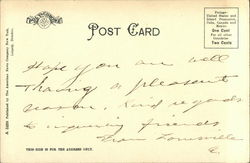 POST CARD
Postage:
United States and
Island Possessions,
Cuba, Canada and
Mexico
One Cent
For all other
Countries
Two Cents
Hope you are well
Having a pleasant
season. Kind regards
to inquiring friends
from Louisville
E.
THIS SIDE IS FOR THE ADDRESS ONLY.
Published by The American News Company, New York.